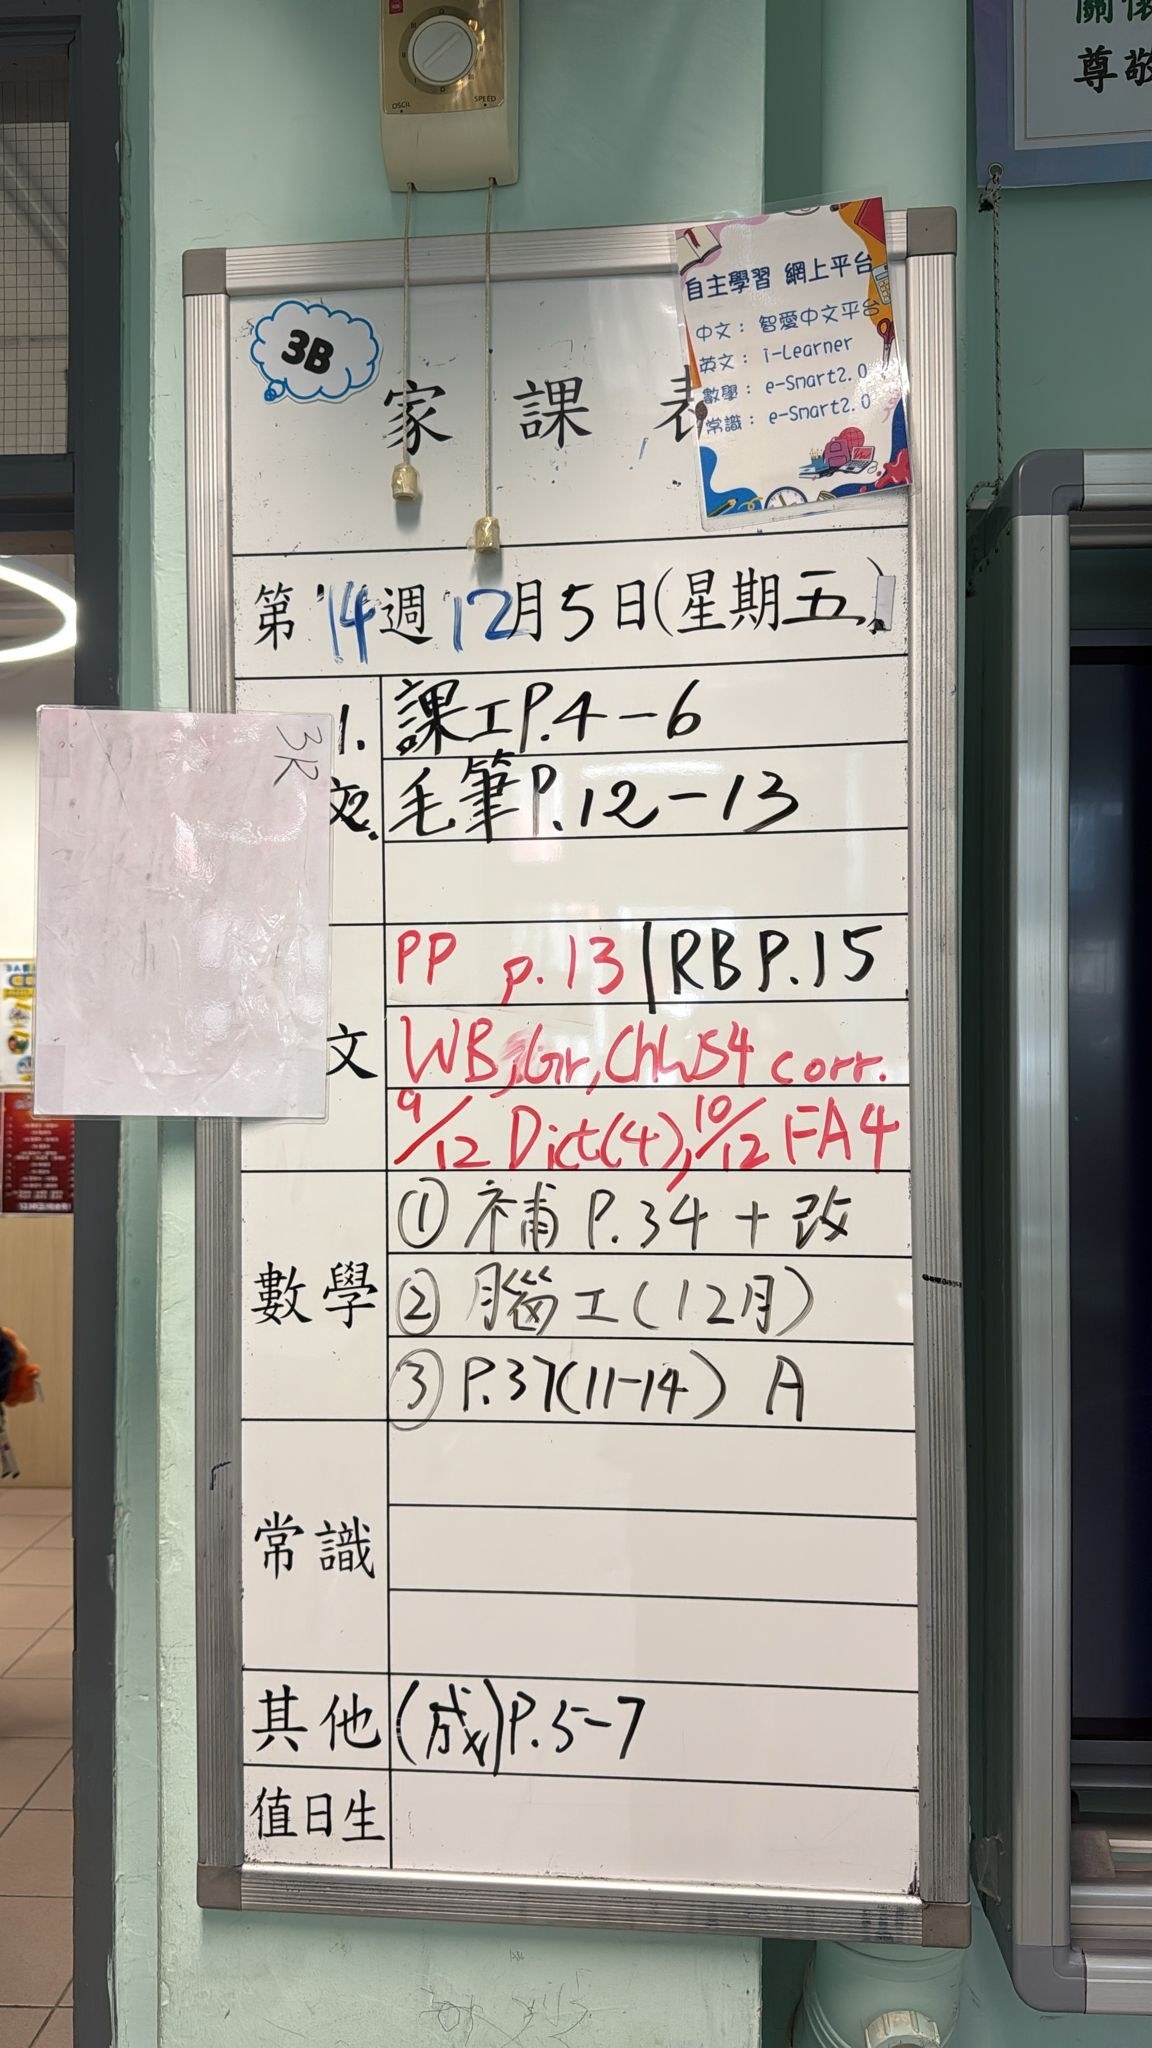 關懷
尊敬
OSCIL SPEED
3B
家課表
自主學習 網上平台
中文： 智愛中文平台
英文： i-Learner
數學： e-Smart2.0
常識： e-Smart2.0
第14週12月5日(星期五)
3R
文
1. 課工P.4-6
2. 毛筆P.12-13
文
PP p.13 | RB P.15
WB, Gr, Ch WS4 corr.
9/12 Dict(4), 10/12 FA4
數學
① 補 P.34 + 改
② 腦工(12月)
③ P.37(11-14) A
常識
其他 (成)P.5-7
值日生